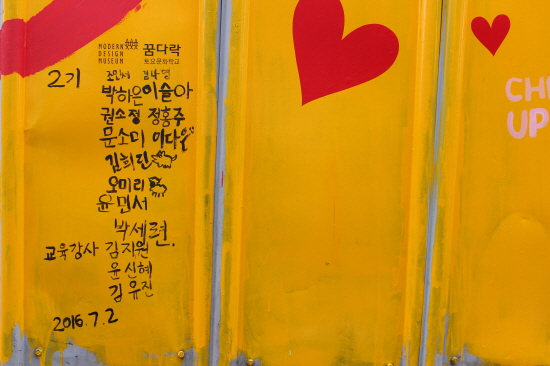 MODERN
DESIGN
MUSEUM
꿈다락
토요문화학교
2기
조민서 김나영
박하은 이슬아
권소정 정홍주
문소미 이다은
김희린
오미리
윤민서
박세련.
교육강사 김지원
윤신혜
김유진
2016.7.2
UP